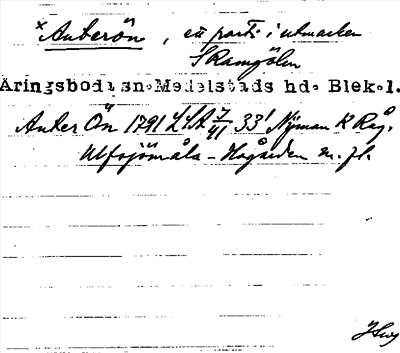 ×Ankerön, ett parti i utmarken
Skamsjölen
Äringsboda sn. Medelstads hd. Blek.l.
Anker Ön 1791 LSA 7/41 33' Nyman K Råg.
Ulfssjömåla - Hogården m. fl.